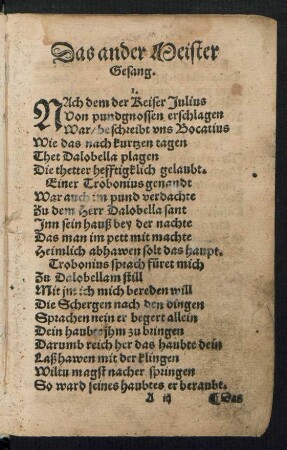 Das ander Meister
Gesang.
1.
NAch dem der Keiser Julius
Von pundgnossen erschlagen
War/ beschreibt vns Bocatius
Wie das nach kurtzen tagen
Thet Dalobella plagen
Die thetter hefftigklich gelaubt.
Einer Trobonius genandt
War auch im pund verdachte
Zu dem Herr Dalobella sant
Inn sein hauß bey der nachte
Das man im pett mit machte
Heimlich abhawen solt das haupt.
Trobonius sprach füret mich
Zu Dalobellam still
Mit jm ich mich bereden will
Die Schergen nach den dingen
Sprachen nein er begert allein
Dein haubt jhm zu bringen
Darumb reich her das haubte dein
Laß hawen mit der klingen
Wiltu magst nacher springen
So ward seines haubtes er beraubt.
A iij Das